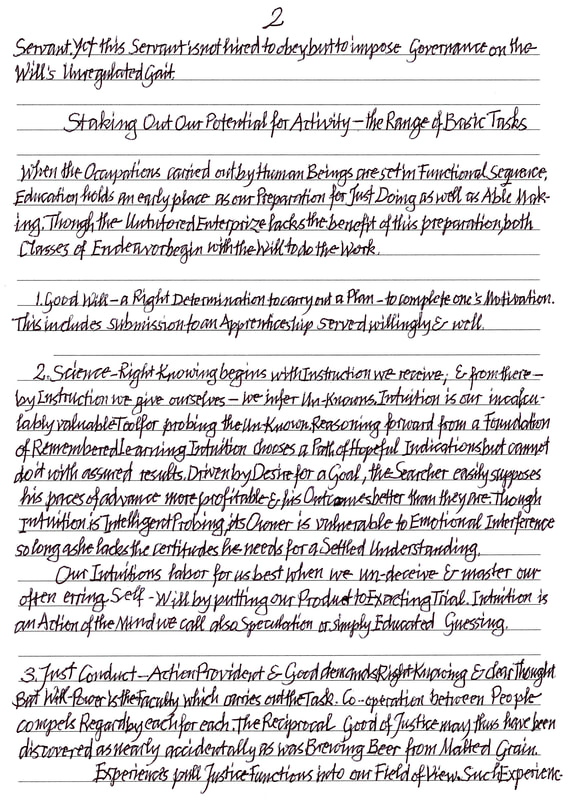 2
Servant. Yet this Servant is not hired to obey but to impose Governance on the
Will's Unregulated Gait.
Staking Out Our Potential for Activity – the Range of Basic Tasks
When the Occupations carried out by Human Beings are set in Functional Sequence,
Education holds an early place as our Preparation for Just Doing as well as Able Mak-
ing. Though the Untutored Enterprize lacks the benefit of this preparation, both
Classes of Endeavor begin with the Will to do the Work.
1. Good Will – a Right Determination to carry out a Plan – to complete one's Motivation.
This includes submission to an Apprenticeship served willingly & well.
2. Science – Right Knowing begins with Instruction we receive; & from there –
by Instruction we give ourselves – we infer Un-Knowns. Intuition is our incalcu-
lably valuable Tool for probing the Un-Known. Reasoning forward from a Foundation
of Remembered Learning, Intuition chooses a Path of Hopeful Indications but cannot
do it with assured results. Driven by Desire for a Goal, the Searcher easily supposes
his paces of advance more profitable & his Outcomes better than they are. Though
Intuition is Intelligent Probing, its Owner is vulnerable to Emotional Interference
so long as he lacks the certitudes he needs for a Settled Understanding.
Our Intuitions labor for us best when we un-deceive & master our
often erring Self-Will by putting our Product to Exacting Trial. Intuition is
an Action of the Mind we call also Speculation or simply Educated Guessing.
3. Just Conduct – Action Provident & Good demands Right Knowing & clear Thought
But Will-Power is the Faculty which carries out the Task. Co-operation between People
compels Regard by each for each. The Reciprocal Good of Justice may thus have been
discovered as nearly accidentally as was Brewing Beer from Malted Grain.
Experiences pull Justice Functions into our Field of View. Such Experienc-